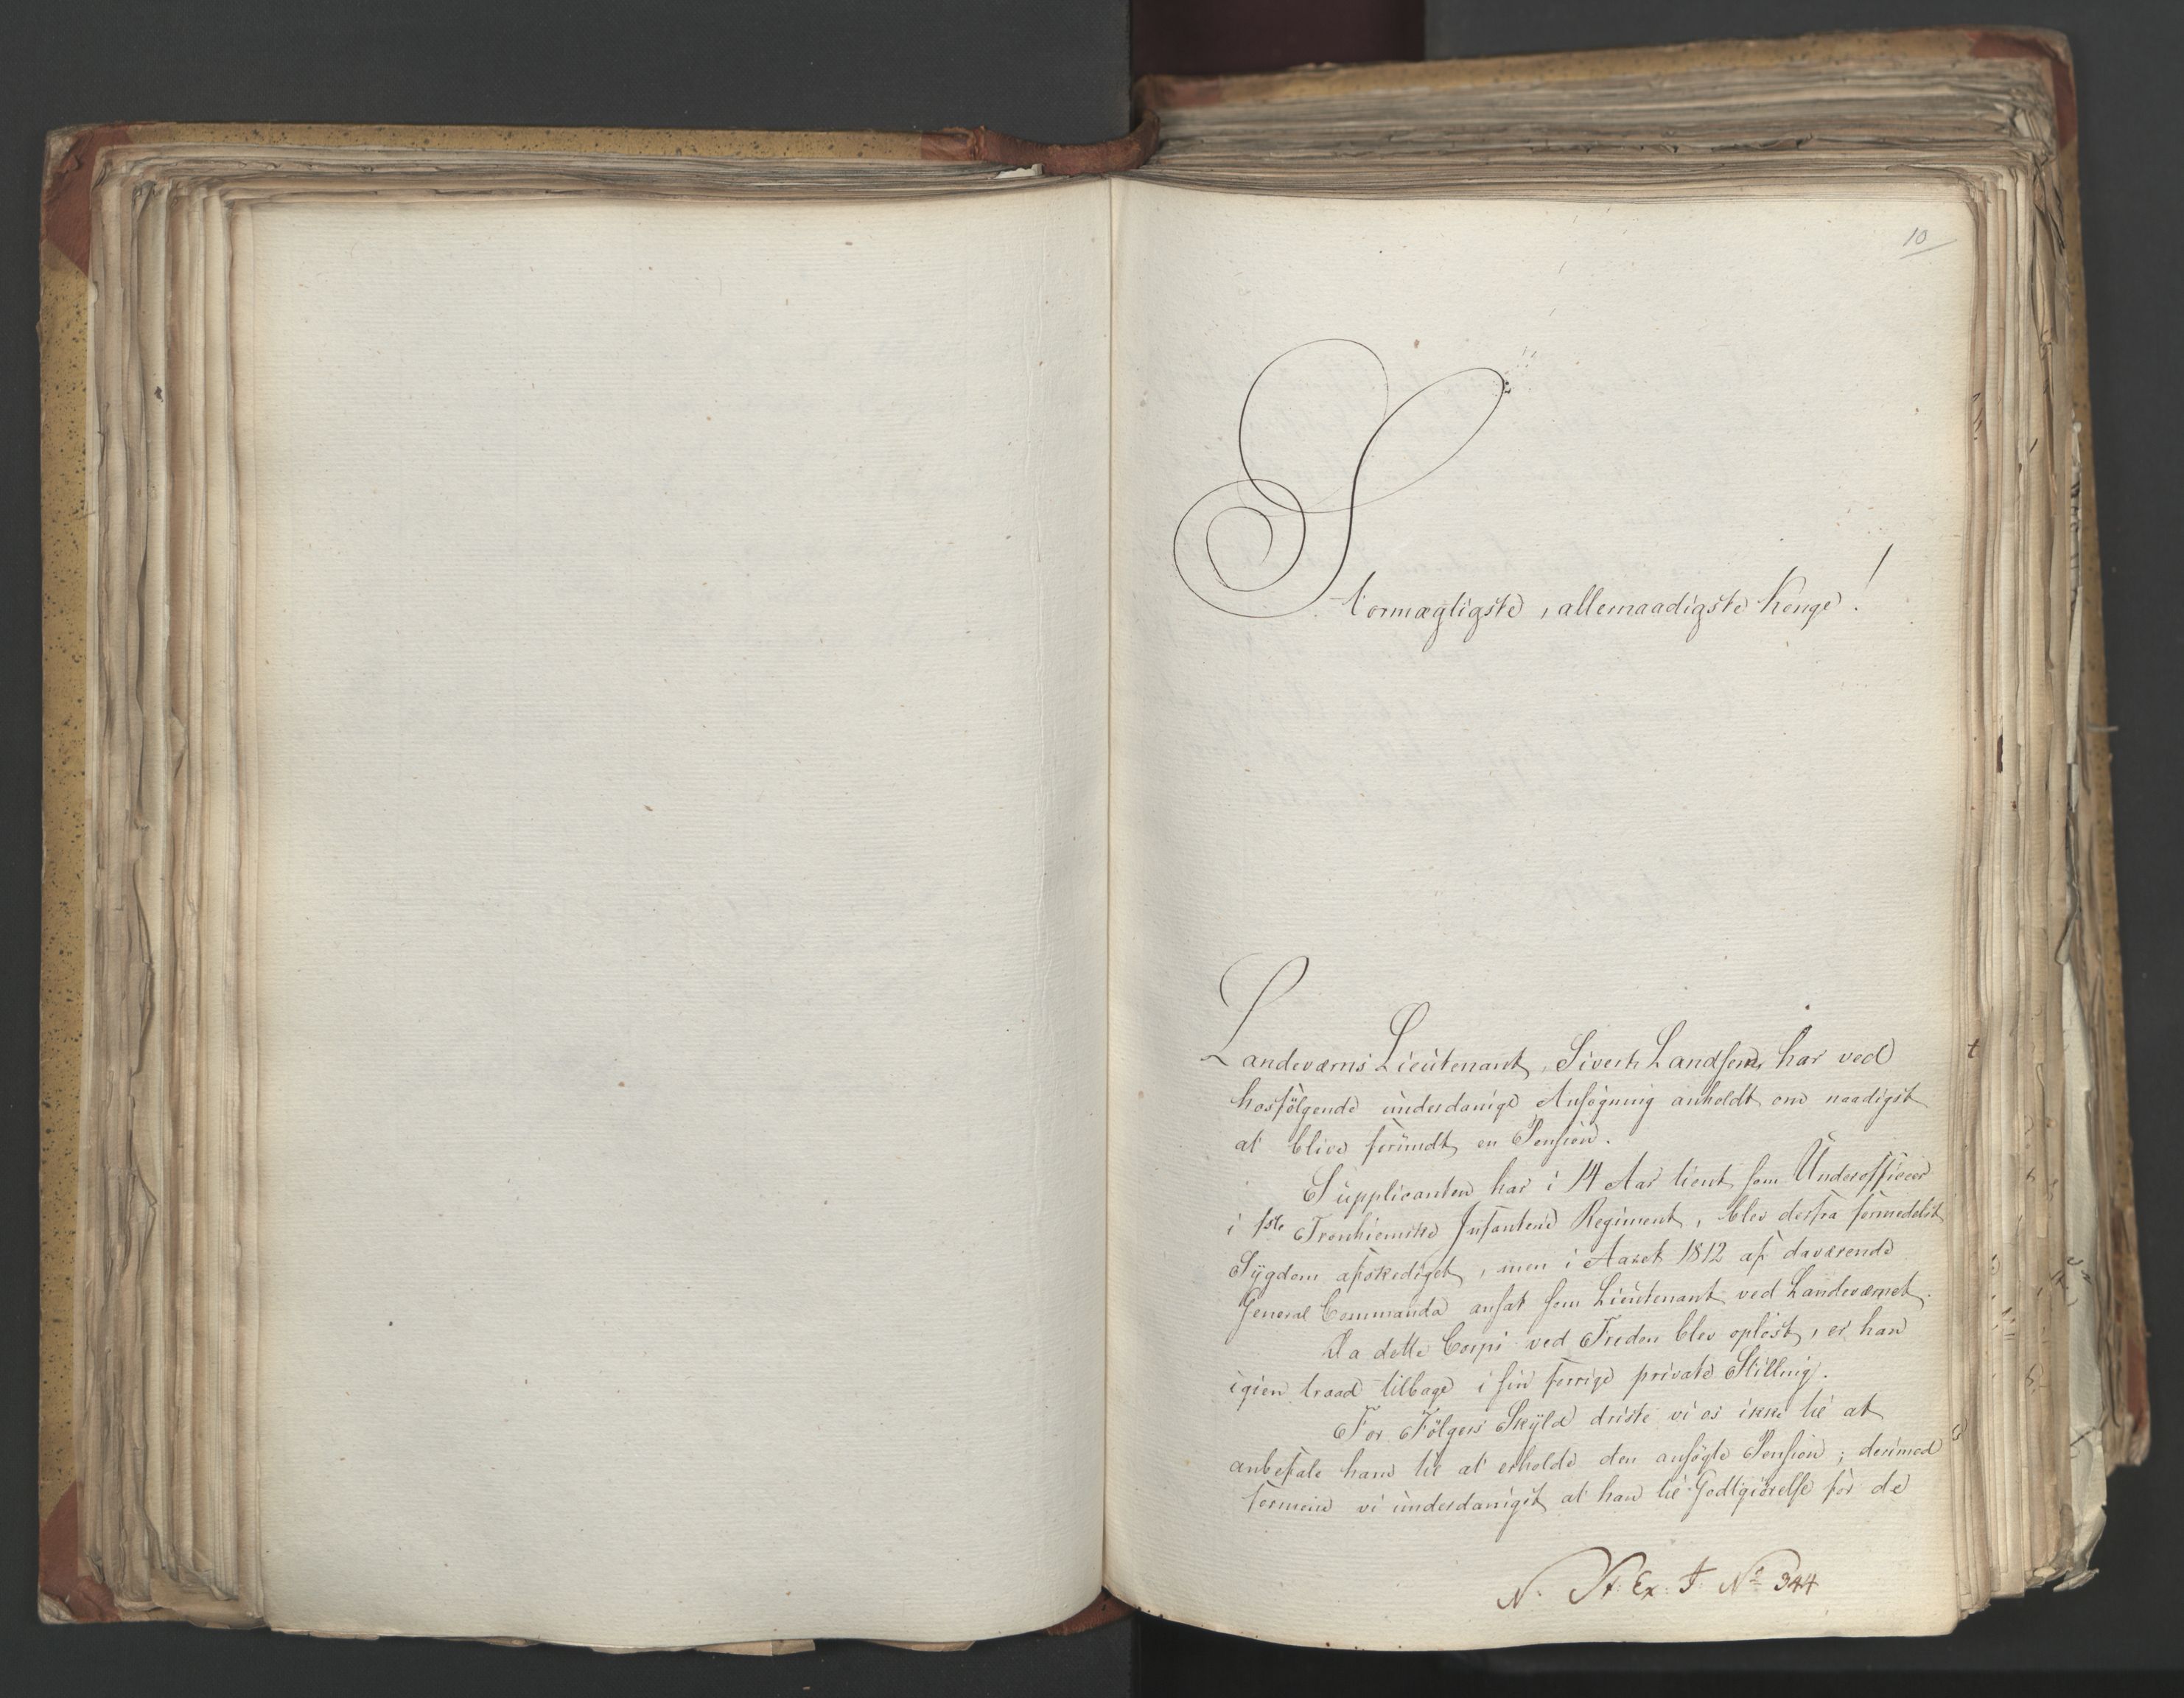 10
Stormægtigste, allernaadigste Konge!
Landeværns Lieutenant, Sivert Landsem, har ved
hosfölgende underdanige Ansögning anholdt om naadigst
at blive forundt en Pension.
Supplicanten har i 14 Aar tient som Underofficeer
i 1ste Tronhiemske Infanterie Regiment, blev derfra formedelst
Sygdom afskediget, men i Aaret 1812 af daværende
General Commando ansat som Lieutenant ved Landeværnet.
Da dette Corps ved Freden blev oplöst, er han
igien traad tilbage i sin forrige private Stilling.
For Fölgers Skyld driste vi os ikke til at
anbefale ham til at erholde den ansögte Pension; derimod
formene vi underdanigst at han til Godtgiörelse for de
N. St. Ex. J. No 344